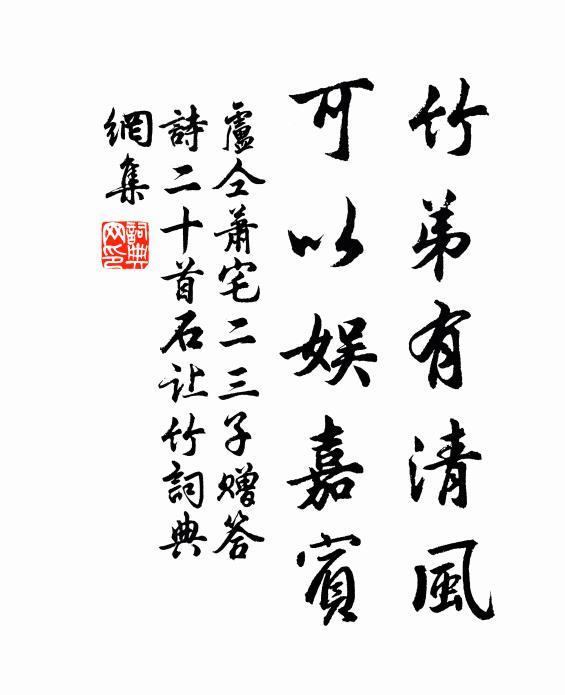 竹弟有清風
可以娛嘉賓
盧仝萧宅二三子赠答
詩二十首石让竹詞典
網集
詞典网印